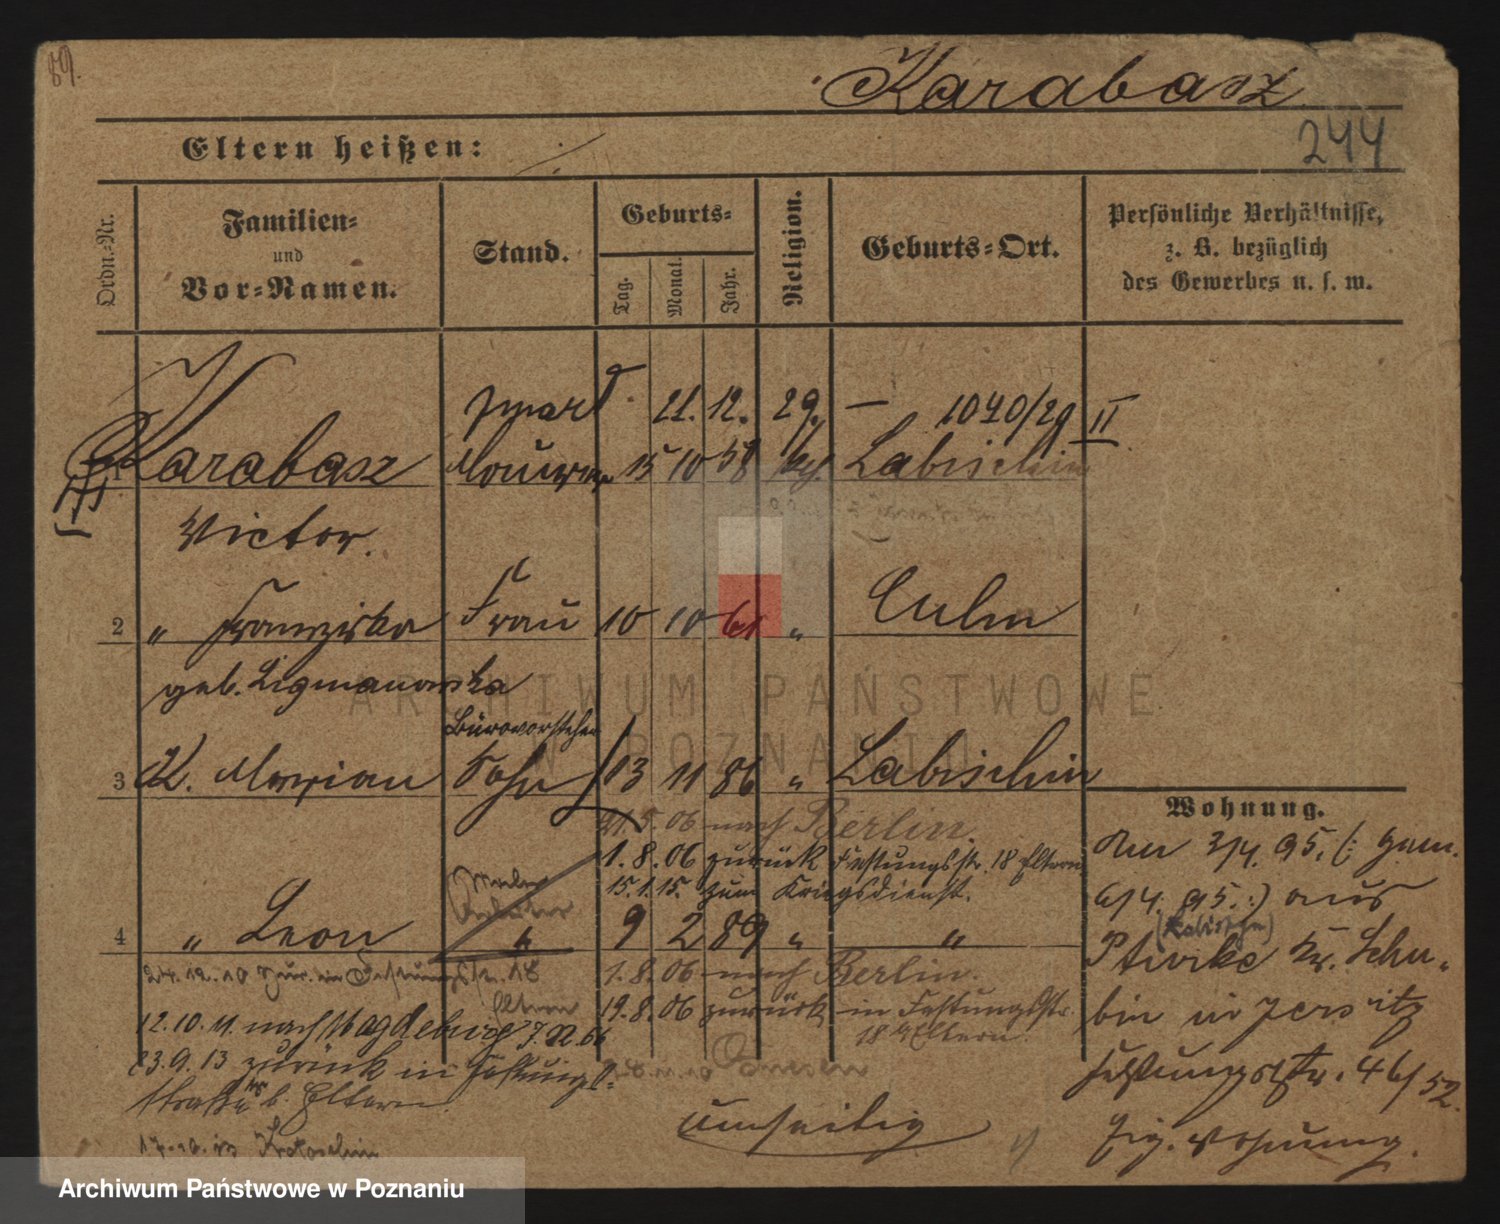 89.
Karabasz
244
Eltern heißen:
Ordn.-Nr.
Familien-
und
Vor-Namen.
Stand.
Geburts-
Tag.
Monat.
Jahr.
Religion.
Geburts-Ort.
Persönliche Verhältnisse,
z. B. bezüglich
des Gewerbes u. s. w.
21. 12. 29. — 1040/29 II
1 Karabasz 15 10 58 kath. Labischin
Victor.
2 " Franziska Frau 10 10 61 " Culm
geb. Ligmanowska
Bürovorsteher
3 K. Marian Sohn 13 11 86 " Labischin
21.5.06 nach Berlin.
1.8.06 zurück Festungsstr. 18 Eltern
15.1.15. zum Kriegsdienst.
4 " Leon " 9 2 89 " "
1.8.06 nach Berlin.
19.8.06 zurück in Festungsstr.
18 Eltern
24.12.10 zur. in Festungsstr. 18
Eltern
12.10.11. nach Magdeburg
23.9.13 zurück in Festungs-
straße b. Eltern.
Gnesen
Krotoschin
umseitig
Wohnung.
den 3/4. 95. (: gem.
6/4. 95. :) aus
(Labischin)
Kr. Schu-
bin in Jersitz
Festungsstr. 46/52.
Eig. Wohnung.
ARCHIWUM PAŃSTWOWE
W POZNANIU
Archiwum Państwowe w Poznaniu